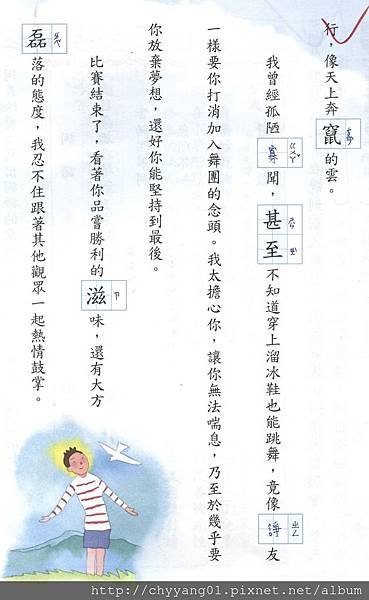 行，像天上奔竄的雲。
我曾經孤陋寡ㄍㄨㄚˇ聞，甚至不知道穿上溜冰鞋也能跳舞，竟像諍ㄓㄥ友
一樣要你打消加入舞團的念頭。我太擔心你，讓你無法喘息，乃至於幾乎要
你放棄夢想，還好你能堅持到最後。
比賽結束了，看著你品嘗勝利的滋ㄗ味，還有大方
磊落的態度，我忍不住跟著其他觀眾一起熱情鼓掌。
http://chyyang01.pixnet.net/album